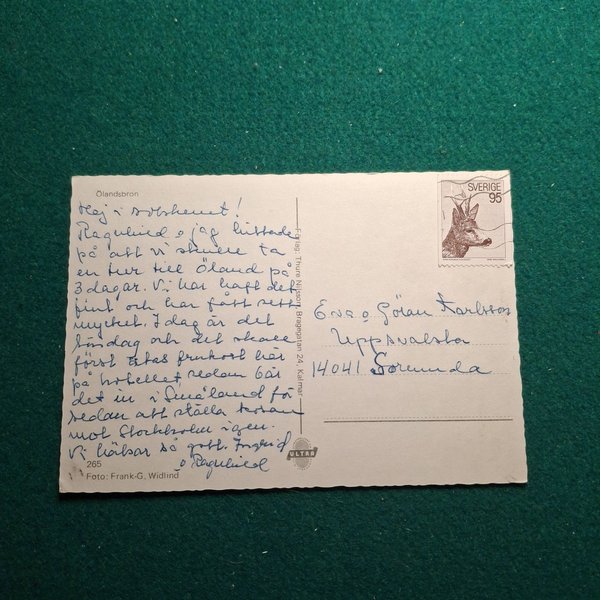 Ölandsbron
Hej i solskenet!
Ragnhild o jag hittade
på att vi skulle ta
en tur till Öland på
3 dagar. Vi har haft det
fint och har fått sett
mycket. I dag är det
tisdag och det skall
först ätas frukost här
på hotellet, sedan bär
det in i Småland för
sedan att ställa kosan
mot Stockholm igen.
Vi hälsar så gott. Ingrid
o Ragnhild
265
Foto: Frank-G. Widlind
Förlag: Thure Nilsson, Bragegatan 24, Kalmar
ULTRA
SVERIGE
95
Eva o Göran Karlsson
Uppsvalsta
14041 Sorunda